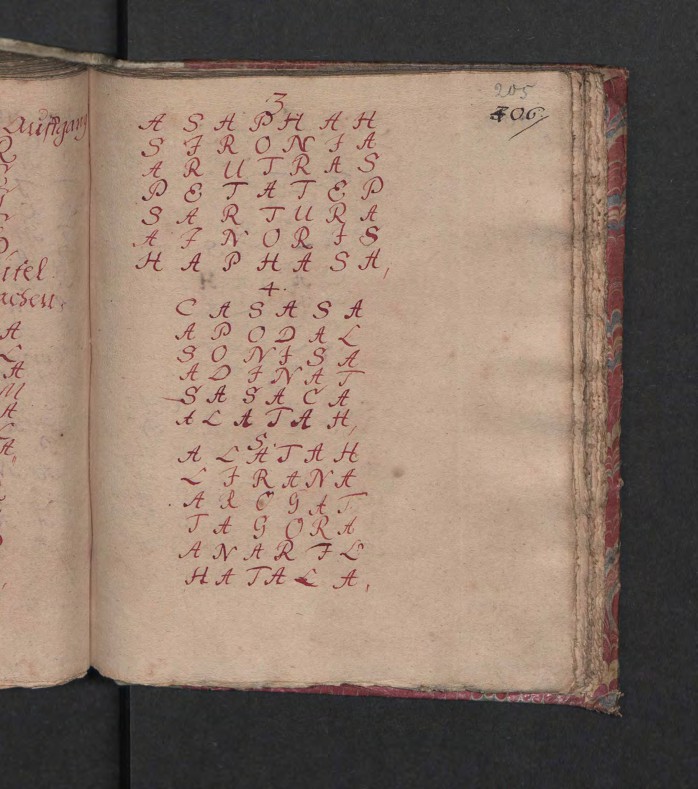 Auffgang
itel
achen
205
406
3
A S A P H A H
S I R O N I A
A R U T R A S
P E T A T E P
S A R T U R A
A I N O R I S
H A P H A S A,
4.
C A S A S A
A P O D A L
S O N I S A
A D I N A T
S A S A C A
A L A T A H,
5.
A L A T A H
L I R A N A
A R O G A T
T A G O R A
A N A R I L
H A T A L A,